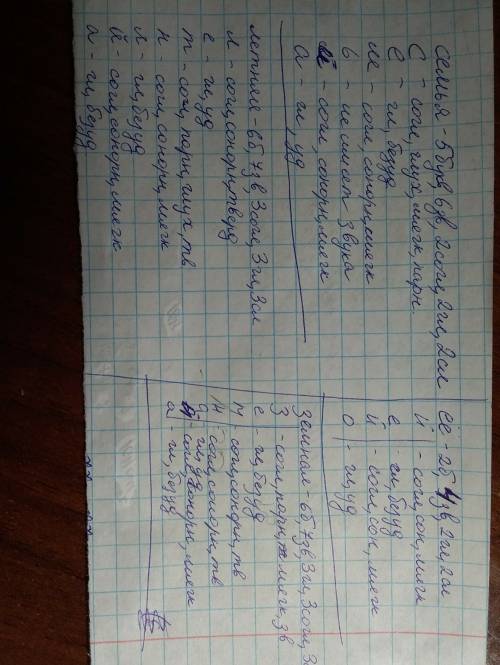 семья - 5 букв, 6 зв, 2 согл, 2 гл, 2 сл
С - согл, глух, мягк, парн.
е - гл, безуд
м - согл, сонорн, мягк
ь - не имеет звука
й - согл, сонорн, мягк
а - гл, уд
летняя - 6 б, 7 зв, 3 согл, 3 гл, 3 сл
л - согл, сонорн, тверд
е - гл, уд
т - согл, парн, глух, тв
н - согл, сонорн, мягк
я - гл, безуд
й - согл, сонорн, мягк
а - гл, безуд
её - 2 б, 4 зв, 2 гл, 2 сл
й - согл, сон, мягк
е - гл, безуд
й - согл, сон, мягк
о - гл, уд
Земная - 6 б, 7 зв, 3 гл, 3 согл, 3
З - согл, парн, мягк, зв
е - гл, безуд
м - согл, сонорн, тв
н - согл, сонорн, тв
й - сонорн, мягк
а - гл, безуд